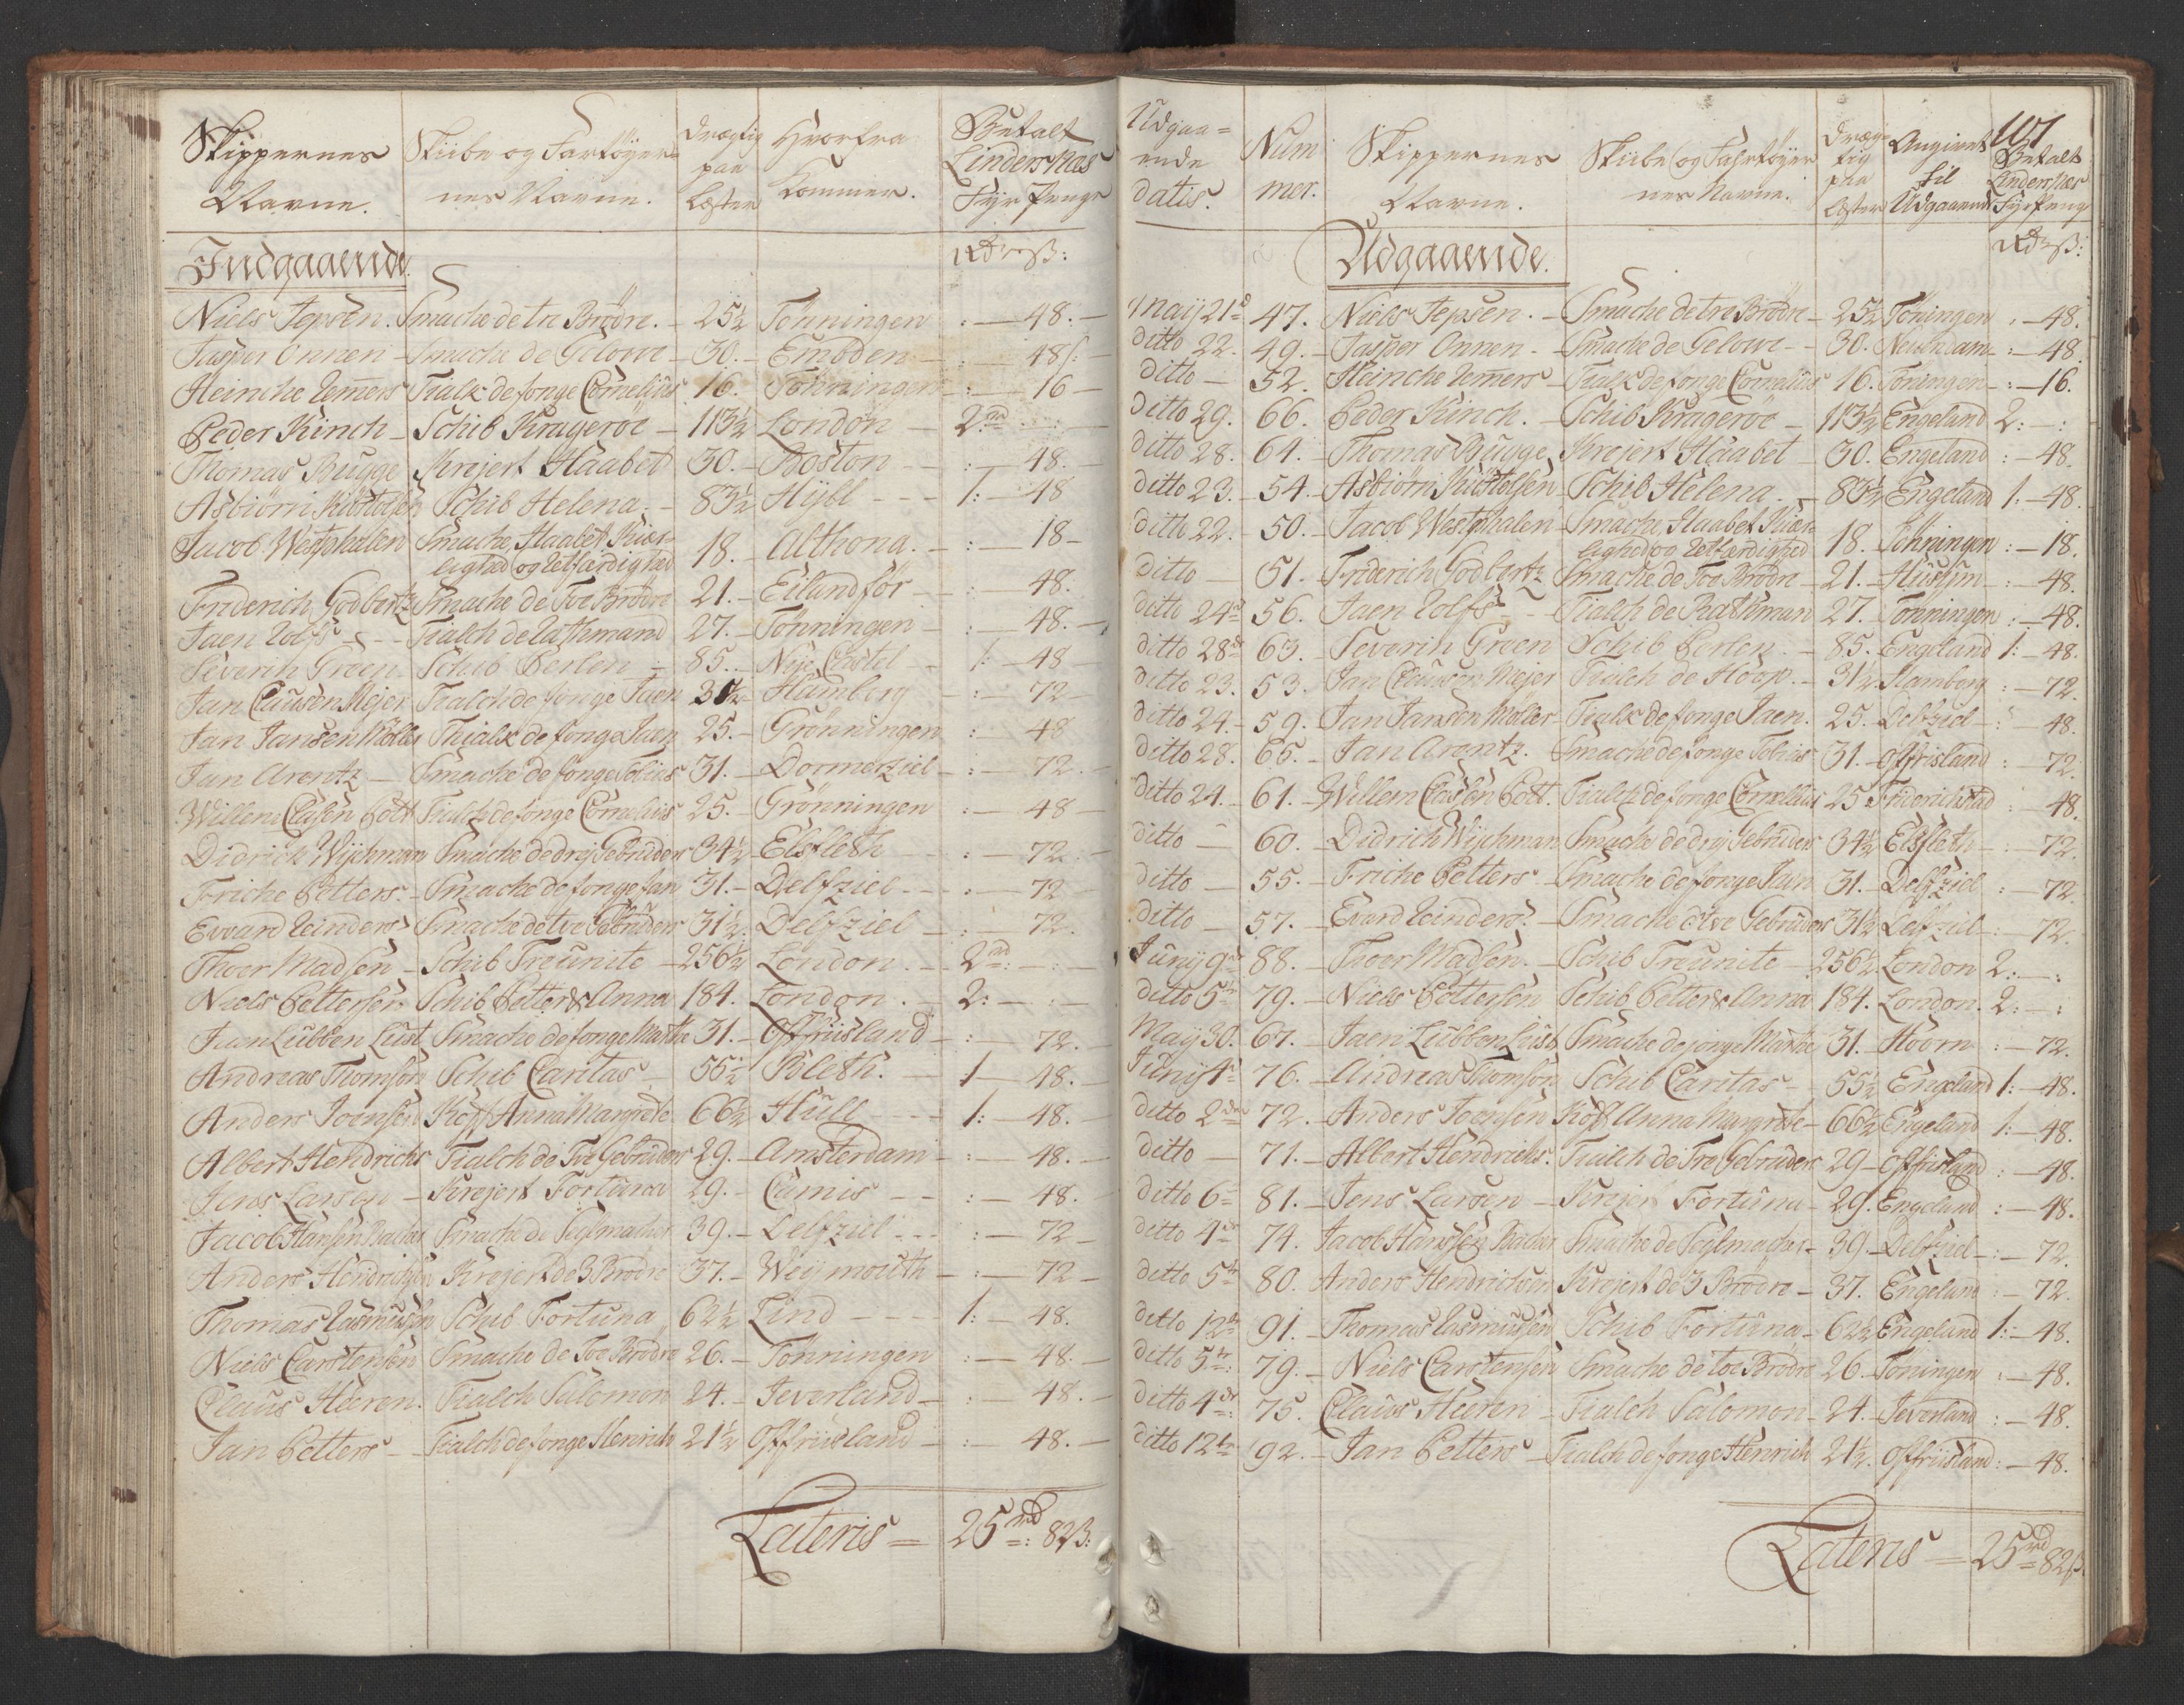 Skippernes Navne. Skibe og Fartöyer- nes Navne. Drægtig paa Læster Hvorfra kommer. Betalt Lindersnæs Fyr Penge
Indgaaende.
Rdr ß:
Niels Jepsen. Smache de tre Brödre. 25½ Tönningen : 48.
Jasper Onnen Smache de Gelowe 30. Embden 48 ß:
Heinche Remers Tialk de jonge Cornelius 16. Tönningen 16
Peder Kinch Schib Krageröe 113½ London 2 rd
Thomas Bugge Krejert Haabet 30. Boston : 48.
Asbiörn Schib Helena. 83½ Hÿll 1: 48
Jacob Westphalen Smache Haabet Kier-
lighed og Retfærdighed 18. Althona. : 18
Friderich Godbertz Smache de Toe Brödre 21. Eilandför 48.
Jaen Rolfs Tialch de Rathmand 27. Tönningen : 48.
Severin Green Schib Perlen 85. Nye Castel 1: 48
Jan Clausen Mejer Tialch de jonge Jaen 31½ Hamborg : 72
Jan Jansen Möller Thialk de jonge Jaen 25. Grönningen : 48
Jan Arentz Smache de jonge Tobias 31. Dormerziel : 72.
Willem Clasen Bott Tialch de jonge Cornelius 25. Grönningen : 48
Didrich Wychman Smache de drej Gebrüder 34½ Elsfleth : 72.
Friche Petters. Smache de jonge Jan 31. Delfziel : 72
Evvard Reinders Smache de tve Gebrüders 31½ Delfziel : 72.
Thoer Madsen Schib Treunite 256½ London 2 rd:
Niels Pettersen Schib Petter & Anna 184. London. 2:
Jaen Lübben Lüst Smache de jonge Martha 31. Ostfriisland : 72.
Andreas Thomson Schib Caritas 55½ Bleth. 1 48.
Anders Joensen Koff Anna Margrete 66½ Hüll 1: 48.
Albert Hendrichs Tialch de Tve Gebrüders 29. Amsterdam : 48.
Jens Larsen Krejert Fortuna 29. Camis : 48.
Jacob Hansen Backer Smache de Seglmacher 39. Delfziel : 72
Anders Hendrichsen Krejert de 3 Brödre 37. Weijmouth : 72
Thomas Rasmussen Schib Fortuna 62½ Lind 1: 48.
Niels Carstensen Smache de Toe Brödre 26. Tönningen : 48.
Claus Heeren. Tialch Salomon 24. Jeverland : 48.
Jan Petters Tialch de jonge Henrich 21½ Ostfriisland : 48.
Lateris = 25 rd: 82 ß:
107
Udgaa= ende datis. Num mer. Skippernes Navne. Skibe og Fartöyer nes Navne. Dræg- tig paa Læster Angivet til Udgaaende Betalt Lindersnæs Fyr Peng
Udgaaende.
Rdr ß:
Maij 21d 47. Niels Jepsen. Smache de tre Brödre 25½ Töningen 48.
Ditto 22. 49. Jasper Onnen. Smache de Gelowe 30. : 48.
Ditto 52. Heinche Remers Tialk de jonge Cornelius 16. Toningen : 16.
Ditto 29. 66. Peder Kinch. Schib Krageröe 113½ Engeland 2: :
Ditto 28. 64. Thomas Bugge Krejert Haabet 30. Engeland : 48.
Ditto 23. 54. Asbiörn Schib Helena. 83½ Engeland 1. 48.
Ditto 22. 50. Jacob Westphalen Smache Haabet Kier-
lighed og Retfærdighed 18. Tönningen : 18.
Ditto 51. Friderich Godbertz Smache de Toe Brödre 21. Hussum 48.
Ditto 24d 56. Jaen Rolfs Tialch de Rathman 27. Tönningen : 48.
Ditto 28de 63. Severin Green Schib Perlen. 85. Engeland 1: 48.
Ditto 23. 53. Jan Clausen Mejer Tialch de Hoop. 31½ Hamborg : 72.
Ditto 24. 59. Jan Jansen Möller Tialk de jonge Jaen. 25. Delfziel 48.
Ditto 28. 65. Jan Arentz. Smache de jonge Tobias 31. Ostfriisland : 72.
Ditto 24. 61. Willem Clasen Bott. Tialch de jonge Cornelius 25 Friderichstad 48.
Ditto 60. Didrich Wychman Smache de drej Gebrüders 34½ Elsfleth 72.
Ditto 55. Friche Petters Smache de jonge Jaen 31. Delfziel : 72.
Ditto 57. Evard Reinders. Smache de tve Gebrüders 31½ Delfziel : 72.
Junij 9de 88. Thoer Madsen. Schib Treunite 256½ London 2:
Ditto 5te 79. Niels Pettersen Schib Petter & Anna 184. London. 2: :
Maij 30. 67. Jaen Lübben Lüst Smache de jonge Martha 31. Hoorn : 72.
Junij 4de 76. Andreas Thomson Schib Caritas 55½ Engeland 1: 48.
Ditto 2den 72. Anders Joensen Koff Anna Margrete 66½ Engeland 1: 48.
Ditto 71. Albert Hendrichs. Tialch de Tve Gebrüders 29 Ostfriisland : 48.
Ditto 6te 81. Jens Larsen Krejert Fortuna 29. Engeland : 48.
Ditto 4de 74. Jacob Hansen Backer Smache de Seglmacher 39. Delfziel : 72.
Ditto 5te 80. Anders Hendrichsen Krejert de 3 Brödre 37. Engeland : 72.
Ditto 12te 91. Thomas Rasmussen Schib Fortuna 62½ Engeland 1: 48.
Ditto 5te: 79. Niels Carstensen Smache de toe Brödre 26. Töningen : 48.
Ditto 4de: 75. Claus Heeren Tialch Salomon 24. Jeverland : 48.
Ditto 12te 92. Jan Petters Tialch de jonge Henrich 21½ Ostfriisland : 48.
Lateris = 25 rd 82 ß.